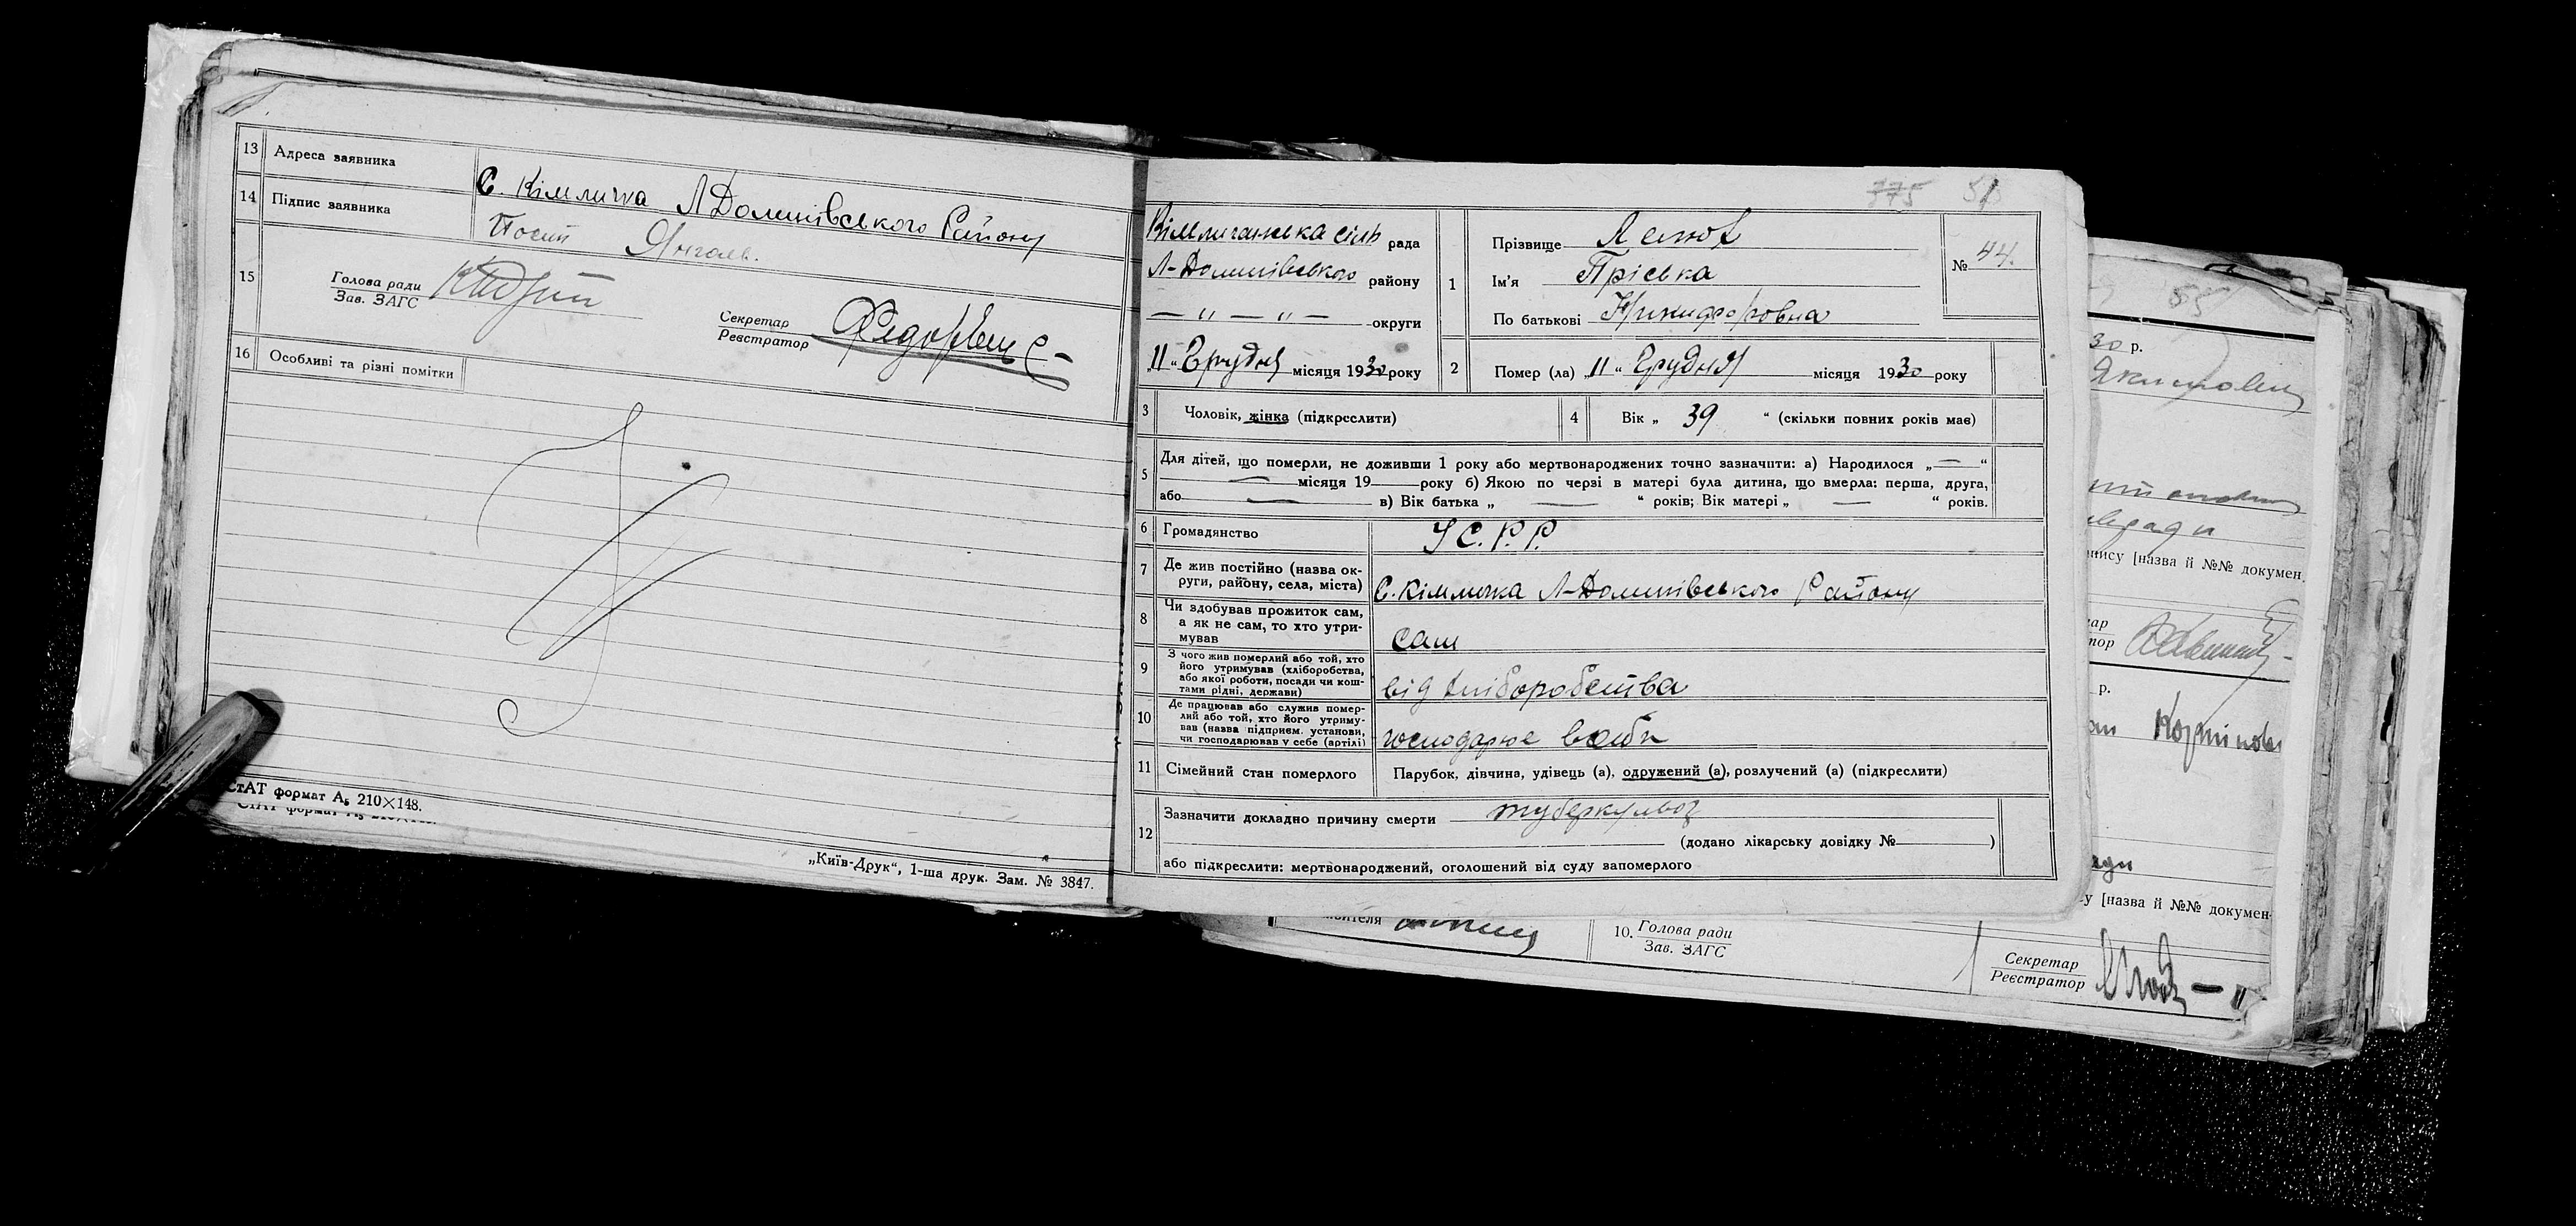 13 Адреса заявника С. Кімличка Л Долинівського Району
14 Підпис заявника
15 Голова ради
Зав. ЗАГС
Секретар
Реєстратор
16 Особливі та різні помітки
СтАТ формат А5 210×148.
„Київ-Друк“, 1-ша друк. Зам. № 3847.
775
Кімличанська сіль рада
Л-Долинівського району
— „ — „ — округи
„11“ Грудня місяця 1930 року
1 Прізвище
Ім'я Пріська
По батькові Никифоровна
№ 44.
2 Помер (ла) „11“ Грудня місяця 1930 року
3 Чоловік, жінка (підкреслити)
4 Вік „ 39 “ (скільки повних років має)
5 Для дітей, що померли, не доживши 1 року або мертвонароджених точно зазначити: а) Народилося „—“
— місяця 19 року б) Якою по черзі в матері була дитина, що вмерла: перша, друга,
або — в) Вік батька „ — “ років; Вік матері „ — “ років.
6 Громадянство У С.Р.Р.
7 Де жив постійно (назва ок-
руги, району, села, міста) С. Кімличка Л-Долинівського Району
8 Чи здобував прожиток сам,
а як не сам, то хто утри-
мував сам
9 З чого жив померлий або той, хто
його утримував (хліборобства,
або якої роботи, посади чи кош-
тами рідні, держави) від хліборобства
10 Де працював або служив помер-
лий або той, хто його утриму-
вав (назва підприєм. установи,
чи господарював у себе (артілі) господарює
11 Сімейний стан померлого Парубок, дівчина, удівець (а), одружений (а), розлучений (а) (підкреслити)
12 Зазначити докладно причину смерти туберкульоз
(додано лікарську довідку № )
або підкреслити: мертвонароджений, оголошений від суду запомерлого
30 р.
[назва й №№ докумен.
р.
[назва й №№ докумен-
10. Голова ради
Зав. ЗАГС
Секретар
Реєстратор